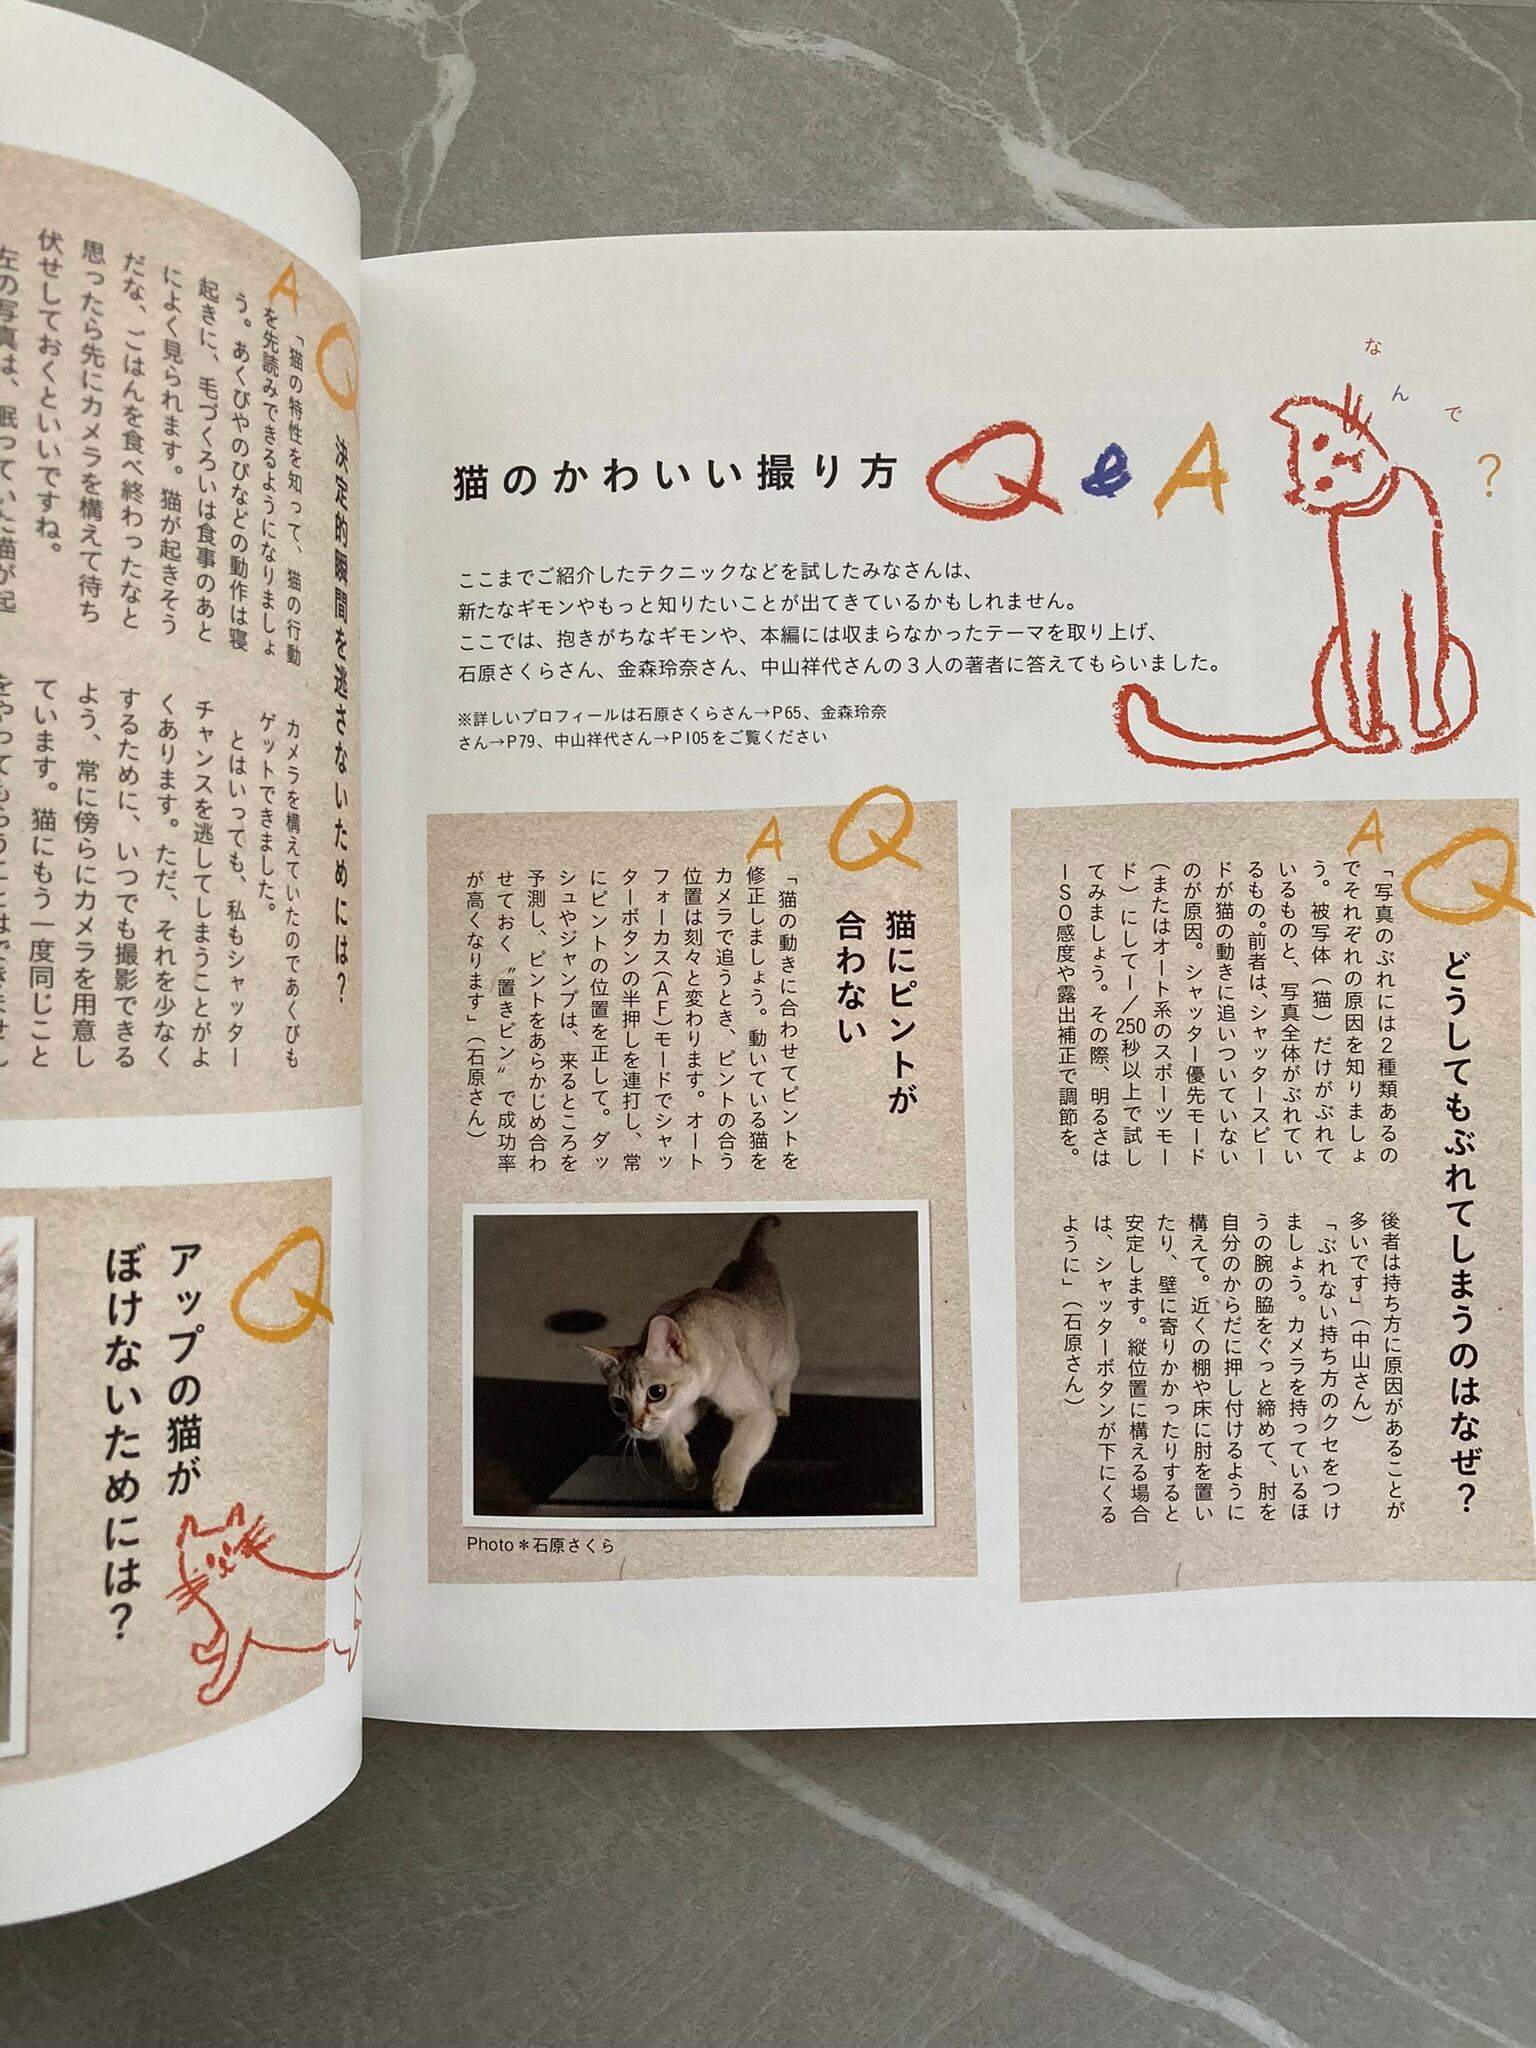 猫のかわいい撮り方 Q&A
なんで?
ここまでご紹介したテクニックなどを試したみなさんは、
新たなギモンやもっと知りたいことが出てきているかもしれません。
ここでは、抱きがちなギモンや、本編には収まらなかったテーマを取り上げ、
石原さくらさん、金森玲奈さん、中山祥代さんの3人の著者に答えてもらいました。
※詳しいプロフィールは石原さくらさん→P65、金森玲奈
さん→P79、中山祥代さん→P105をご覧ください
Q
どうしてもぶれてしまうのはなぜ?
A
「写真のぶれには2種類あるの
でそれぞれの原因を知りましょ
う。被写体(猫)だけがぶれて
いるものと、写真全体がぶれてい
るもの。前者は、シャッタースピー
ドが猫の動きに追いついていない
のが原因。シャッター優先モード
(またはオート系のスポーツモー
ド)にして1/250秒以上で試し
てみましょう。その際、明るさは
ISO感度や露出補正で調節を。
後者は持ち方に原因があることが
多いです」(中山さん)
「ぶれない持ち方のクセをつけ
ましょう。カメラを持っているほ
うの腕の脇をぐっと締めて、肘を
自分のからだに押し付けるように
構えて。近くの棚や床に肘を置い
たり、壁に寄りかかったりすると
安定します。縦位置に構える場合
は、シャッターボタンが下にくる
ように」(石原さん)
Q
猫にピントが
合わない
A
「猫の動きに合わせてピントを
修正しましょう。動いている猫を
カメラで追うとき、ピントの合う
位置は刻々と変わります。オート
フォーカス(AF)モードでシャッ
ターボタンの半押しを連打し、常
にピントの位置を正して。ダッ
シュやジャンプは、来るところを
予測し、ピントをあらかじめ合わ
せておく〝置きピン〟で成功率
が高くなります」(石原さん)
Photo＊石原さくら
Q
決定的瞬間を逃さないためには?
A
「猫の特性を知って、猫の行動
を先読みできるようになりましょ
う。あくびやのびなどの動作は寝
起きに、毛づくろいは食事のあと
によく見られます。猫が起きそう
だな、ごはんを食べ終わったなと
思ったら先にカメラを構えて待ち
伏せしておくといいですね。
左の写真は、眠っていた猫が起
カメラを構えていたのであくびも
ゲットできました。
とはいっても、私もシャッター
チャンスを逃してしまうことがよ
くあります。ただ、それを少なく
するために、いつでも撮影できる
よう、常に傍らにカメラを用意し
ています。猫にもう一度同じこと
をやってもらうことはできません
Q
アップの猫が
ぼけないためには?